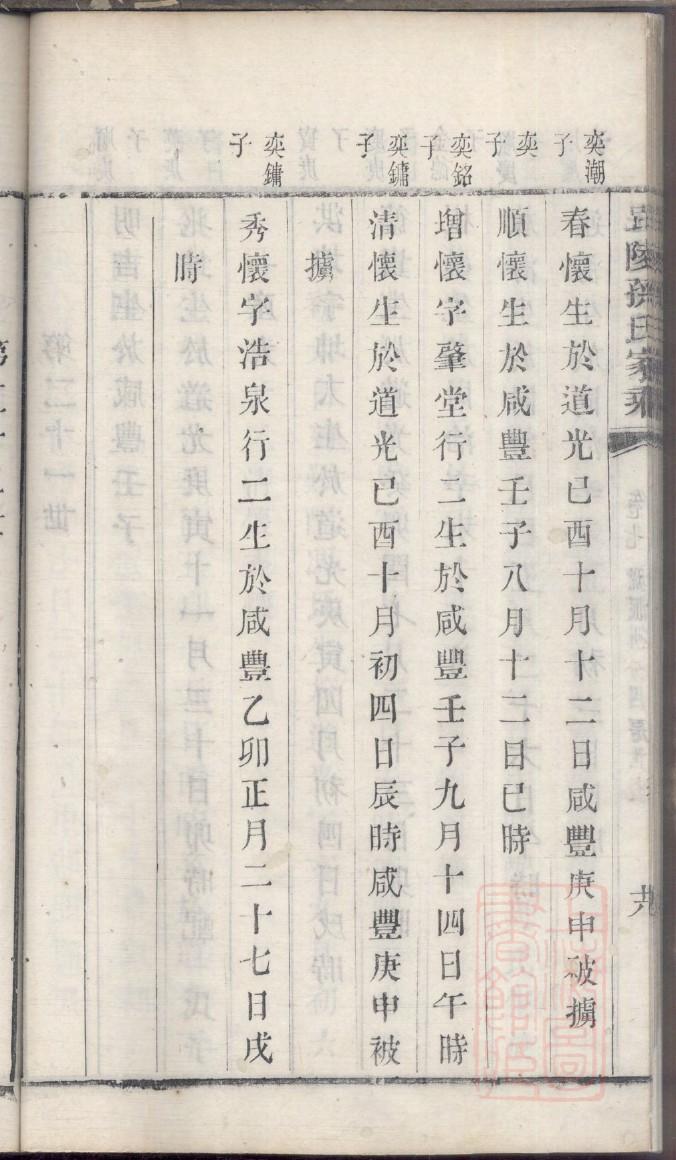 毘陵孫氏家乘
卷七
十九
奕潮子
春懷生於道光己酉十月十二日咸豐庚申被擄
奕子
順懷生於咸豐壬子八月十二日巳時
奕銘子
增懷字肇堂行二生於咸豐壬子九月十四日午時
奕鏽子
清懷生於道光己酉十月初四日辰時咸豐庚申被
擄
奕鏞子
秀懷字浩泉行二生於咸豐乙卯正月二十七日戌
時